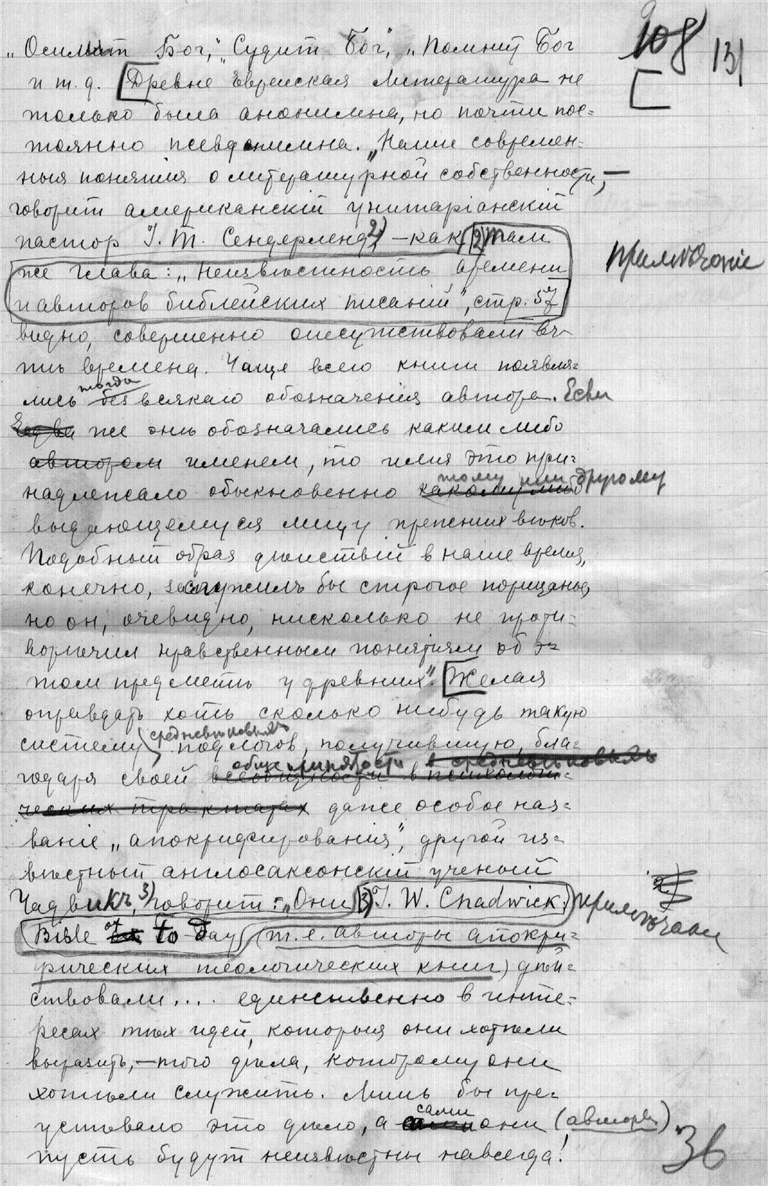 108 131
„Осилит Бог“, „Судит Бог“, „Помнит Бог
и т. д. [Древне Еврейская литература не
только была анонимна, но почти пос-
тоянно псевдонимна. „Наши современ-
ныя понятия о литературной собственности,—
говорит американскій унитаріанскій
пастор I. Т. Сендерленд 2) —как (2) Там
же глава: „Неизвѣстность времени примѣчаніе
и авторов библейских писаній“, стр. 57
видно, совершенно отсутствовали въ
тѣ времена. Чаще всего книги появля-
лись тогда без всякаго обозначенія автора. Если
Едва же онѣ обозначались каким либо
автором именем, то имя это при-
надлежало обыкновенно тому или другому
выдающемуся лицу прежних вѣков.
Подобный образ дѣйствій в наше время,
конечно, заслужилъ бы строгое порицанье,
но он, очевидно, нисколько не проти-
ворѣчил нравственным понятіям об э-
том предметѣ у древних“. [Желая
оправдать хоть сколько нибудь такую
систему средневѣковыхъ подлогов, получившую, бла-
годаря своей всеобщности в средневѣковыхъ
ческих трактатах даже особое наз-
ваніе „апокрифированія“, другой из-
вѣстный англосаксонскій ученый
Чадвикъ, 3) говорит: „Они 3) I. W. Chadwick. примѣчани
Bible of To Day (т.е. авторы апокри-
фических теологических книг) дѣй-
ствовали.... единственно в инте-
ресах тѣх идей, которыя они хотѣли
выразить, —того дѣла, которому они
хотѣли служить. Лишь бы пре-
успѣвало это дѣло, а сами они (авторы)
пусть будут неизвѣстны навсегда!
36